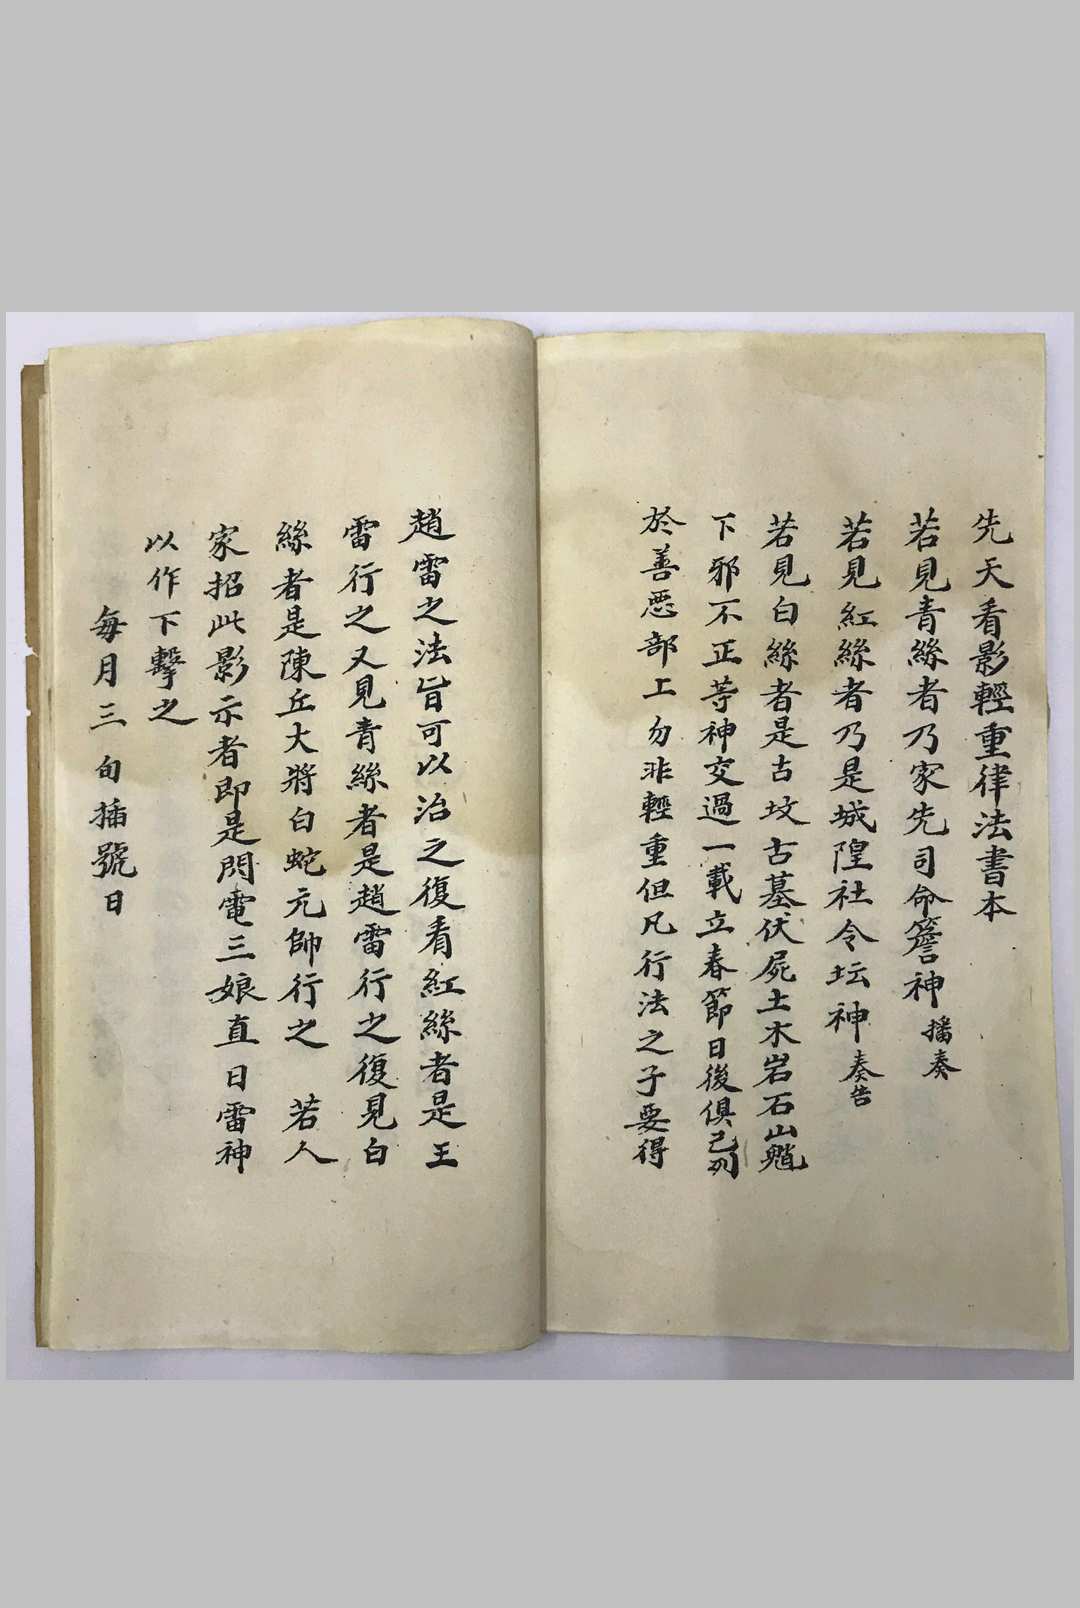 先天看影輕重律法書本
若見青絲者乃家先司命簷神 播奏
若見紅絲者乃是城隍社令坛神 奏告
若見白絲者是古坟古墓伏屍土木岩石山魈
下邪不正等神交過一載立春節日後俱己列
於善惡部上勿非輕重但凡行法之子要得
趙雷之法旨可以治之復看紅絲者是王
雷行之又見青絲者是趙雷行之復見白
絲者是陳丘大將白蛇元帥行之 若人
家招此影示者即是閃電三娘直日雷神
以作下擊之
每月三旬插號日